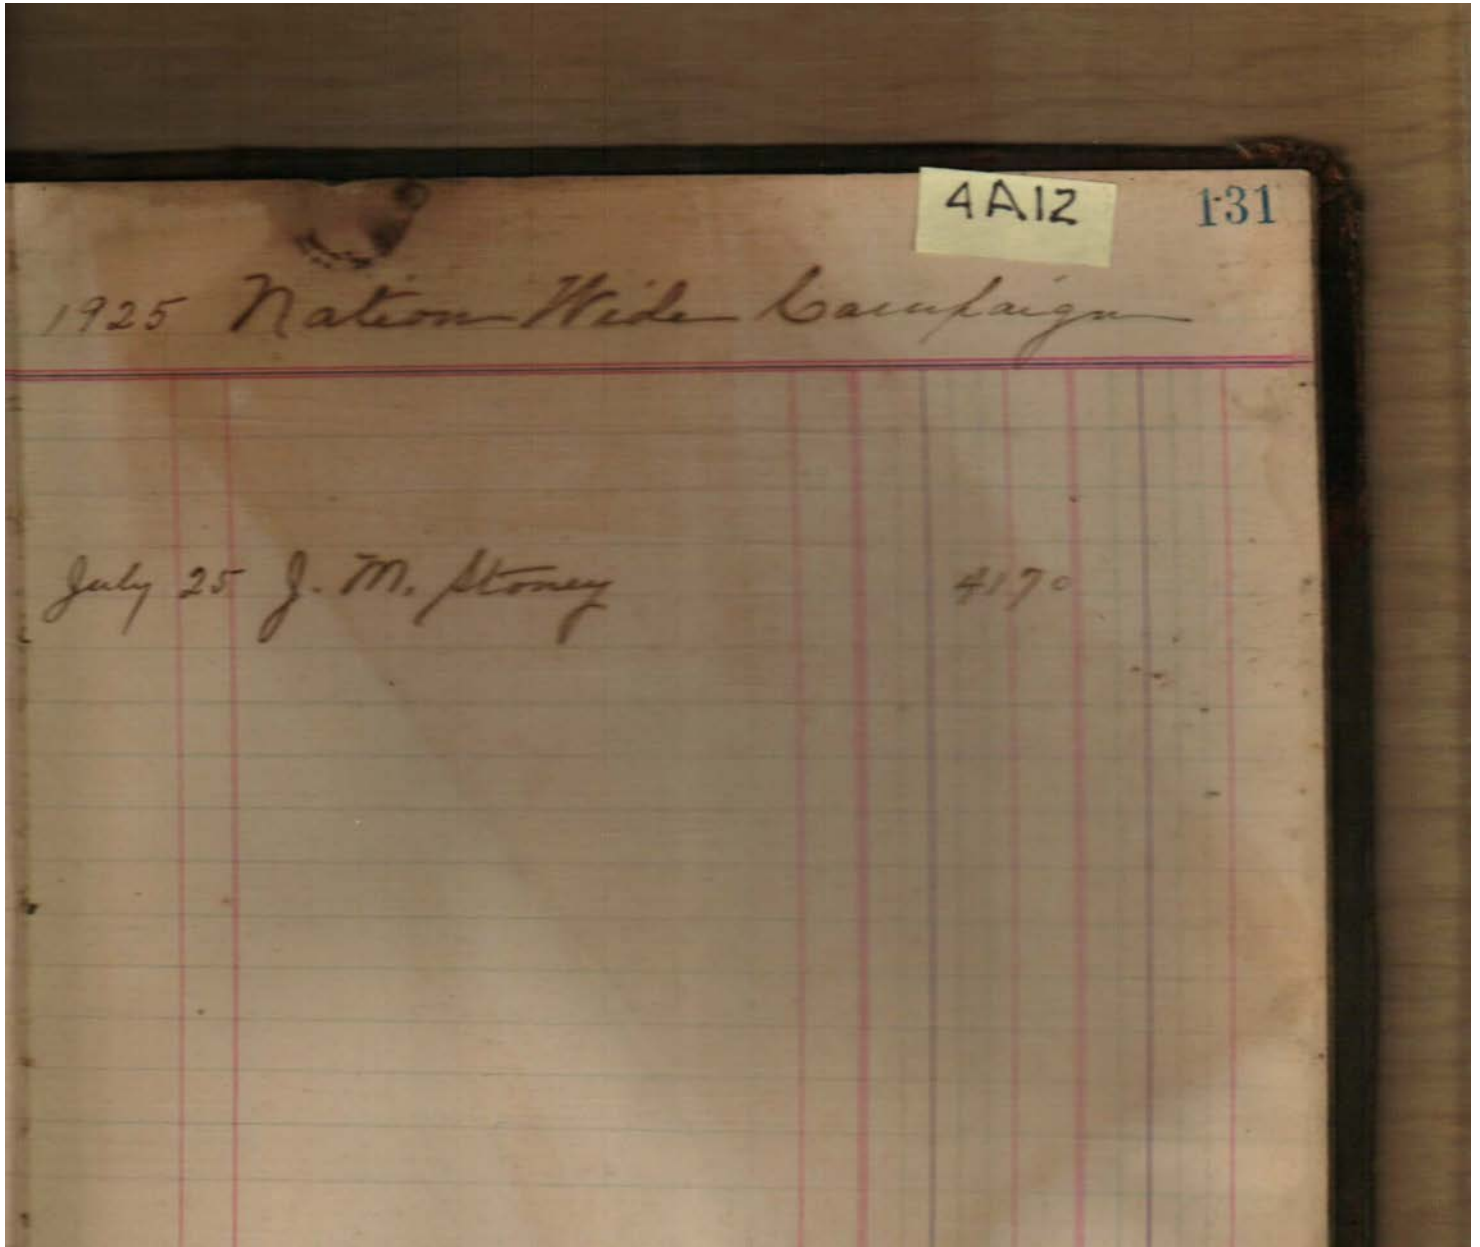 4A12
131
1925 Nation Wide Campaign
July 25 J. M. Stoney 4170